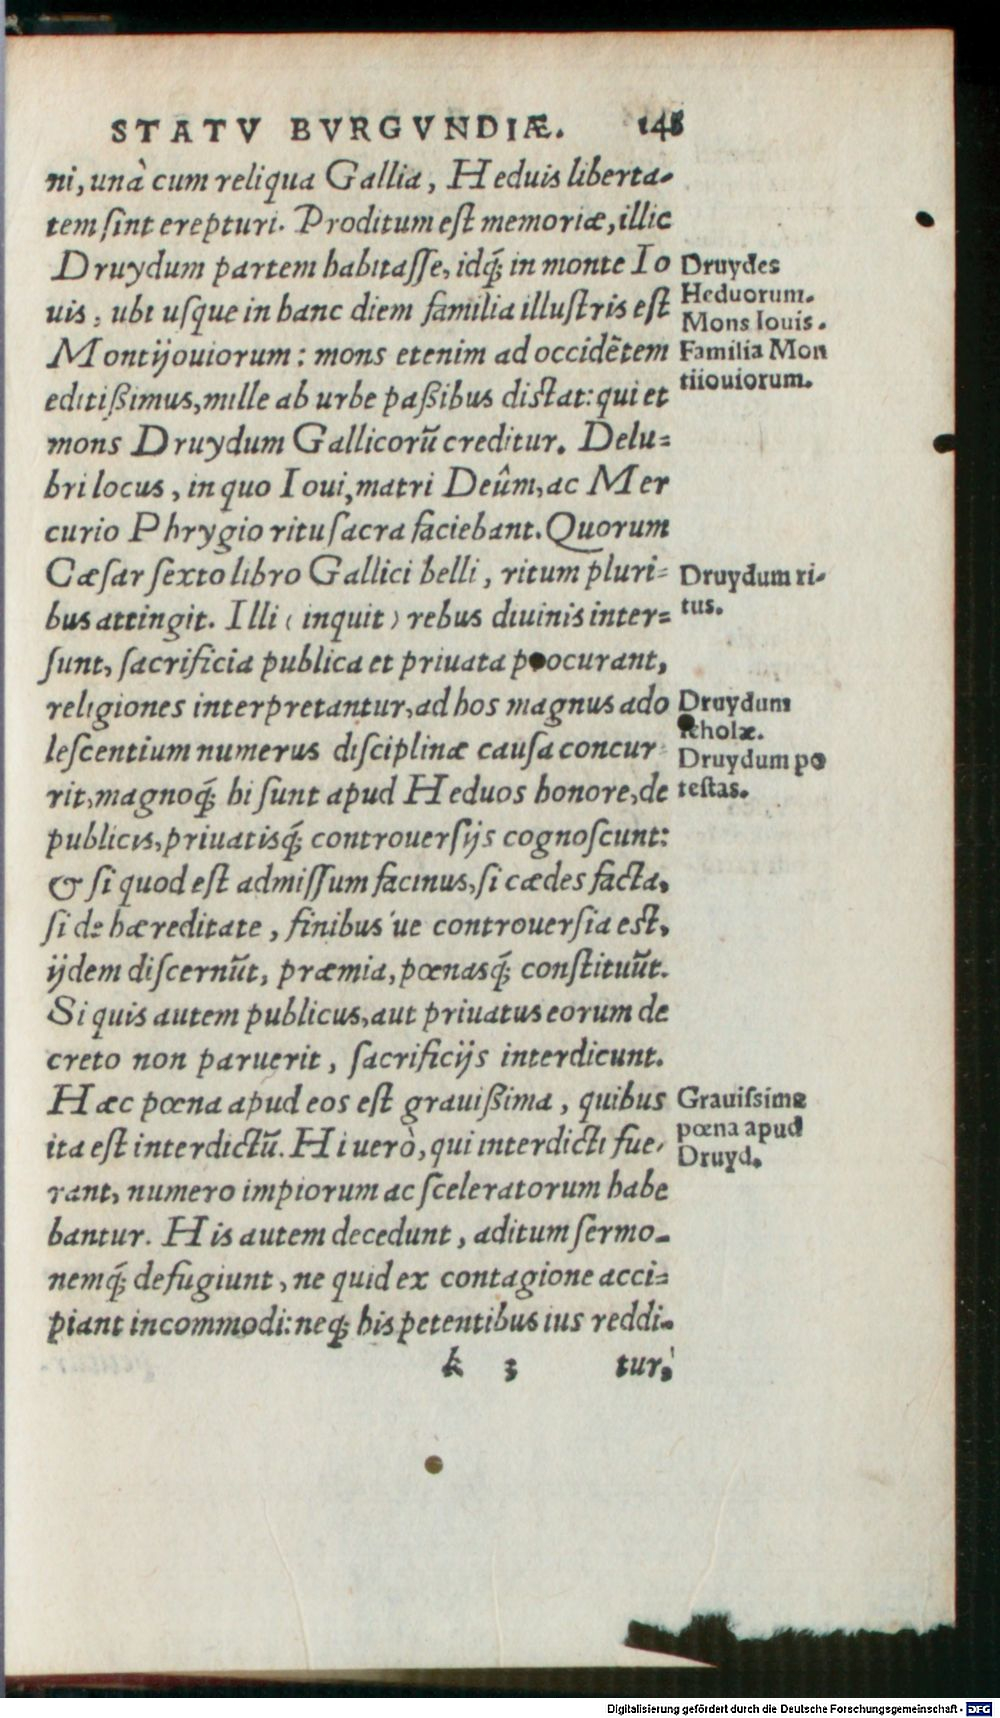 STATV BVRGVNDIÆ. 148
ni, unà cum reliqua Gallia, Heduis liberta-
tem ſint erepturi. Proditum eſt memoriæ, illic
Druydum partem habitaſſe, idq́; in monte Io
uis, ubi uſque in hanc diem familia illuſtris eſt
Montijouiorum: mons etenim ad occidẽtem
editißimus, mille ab urbe paßibus distat: qui et
mons Druydum Gallicorũ creditur. Delu-
bri locus, in quo Ioui, matri Deûm, ac Mer
curio Phrygio ritu ſacra faciebant. Quorum
Cæſar ſexto libro Gallici belli, ritum pluri-
bus attingit. Illi (inquit) rebus diuinis inter-
ſunt, ſacrificia publica et priuata procurant,
religiones interpretantur, ad hos magnus ado
leſcentium numerus diſciplinæ cauſa concur
rit, magnoq́; hi ſunt apud Heduos honore, de
publicis, priuatisq́; controuerſijs cognoſcunt:
& ſi quod eſt admiſſum facinus, ſi cædes facta,
ſi de hæreditate, finibus'ue controuerſia eſt,
ijdem diſcernũt, præmia, pœnasq́; conſtituũt.
Si quis autem publicus, aut priuatus eorum de
creto non paruerit, ſacrificijs interdicunt.
Hæc pœna apud eos eſt grauißima, quibus
ita eſt interdictũ. Hi uerò, qui interdicti fue-
rant, numero impiorum ac ſceleratorum habe
bantur. His autem decedunt, aditum ſermo-
nemq́; defugiunt, ne quid ex contagione acci-
piant incommodi: neq; his petentibus ius reddi-
k 3 tur,
Druydes
Heduorum.
Mons Iouis.
Familia Mon
tiiouiorum.
Druydum ri-
tus.
Druydum
ſcholæ.
Druydum po
teſtas.
Grauiſsima
pœna apud
Druyd.
Digitalisierung gefördert durch die Deutsche Forschungsgemeinschaft - DFG